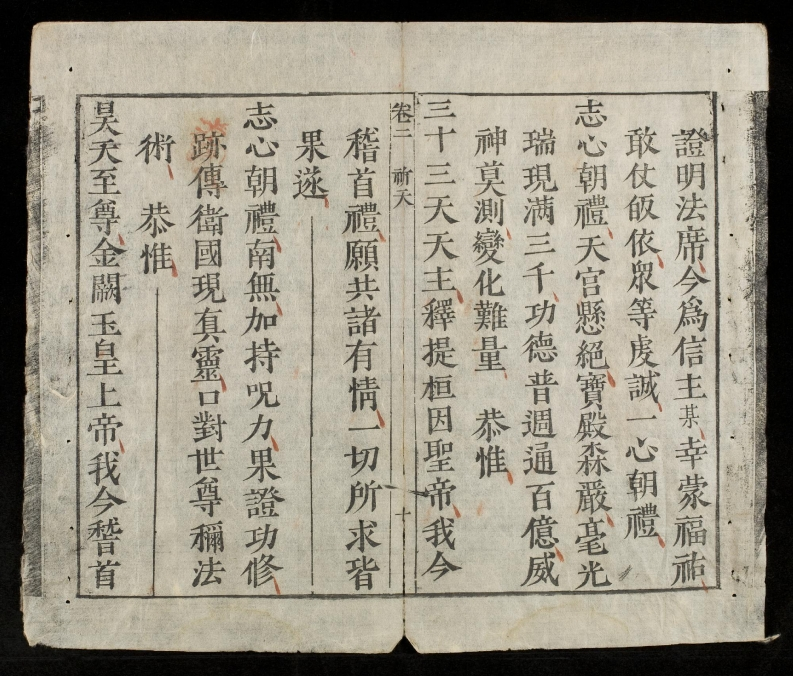 證明法席今爲信主某幸蒙福祐
敢仗皈依衆等虔誠一心朝禮
志心朝禮天宮懸絕寶殿森嚴毫光
瑞現滿三千功德普週通百億威
神莫測變化難量　恭惟
三十三天天主釋提桓因聖帝我今
卷二　祈天　十
稽首禮願共諸有情一切所求皆
果遂
志心朝禮南無加持呪力果證功修
跡傳衛國現真靈口對世尊禰法
術　恭惟
昊天至尊金闕玉皇上帝我今稽首